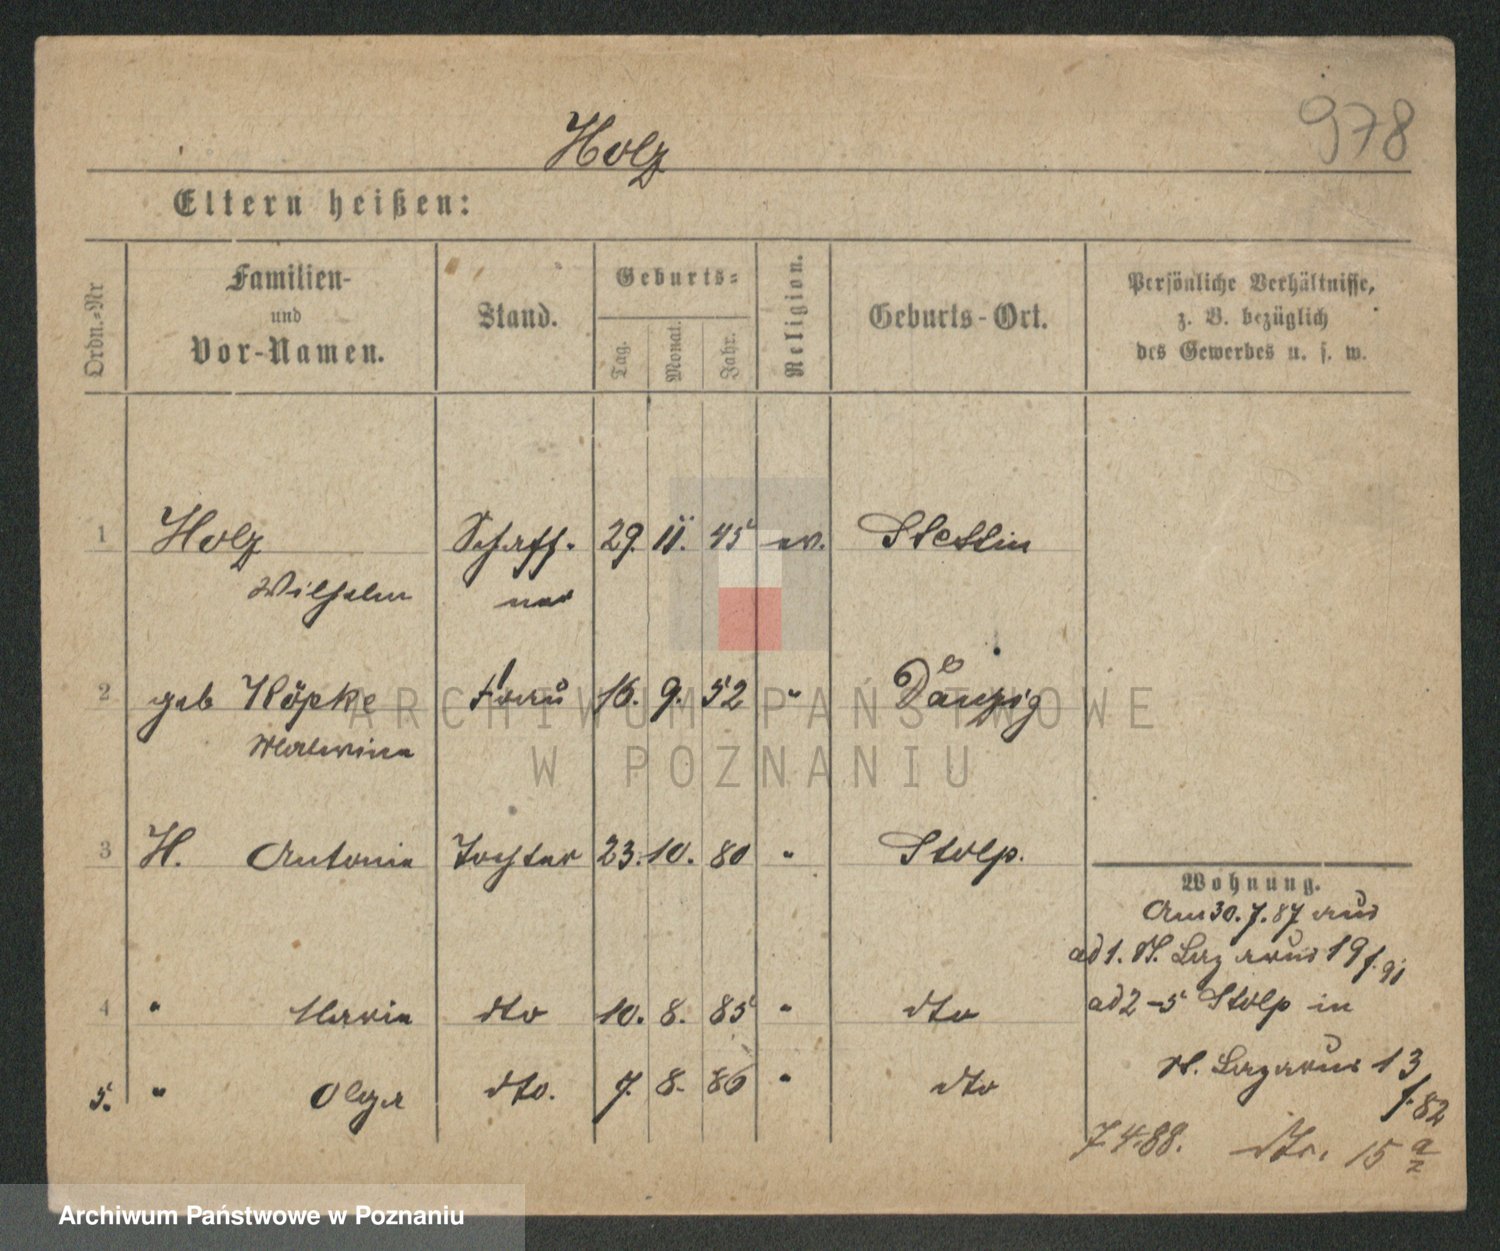 978
Holz
Eltern heißen:
Ordn.-Nr
Familien-
und
Vor-Namen.
Stand.
Geburts-
Tag.
Monat.
Jahr.
Religion.
Geburts-Ort.
Persönliche Verhältnisse,
z. B. bezüglich
des Gewerbes u. s. w.
1 Holz Schaff- 29. 11. 45 ev. Stettin
Wilhelm ner
2 geb Höpke Frau 16. 9. 52 " Danzig
Malwine
3 H. Antonie Tochter 23. 10. 80 " Stolp.
4 " Marie dto 10. 8. 85 " dto
5. " Olga dto. 7. 8. 86 " dto
Wohnung.
Am 30.7.87 aus
ad 1. St. Lazarus 19
ad 2-5 Stolp in
St. Lazarus 13
7 4 88. dto. 15
ARCHIWUM PAŃSTWOWE
W POZNANIU
Archiwum Państwowe w Poznaniu